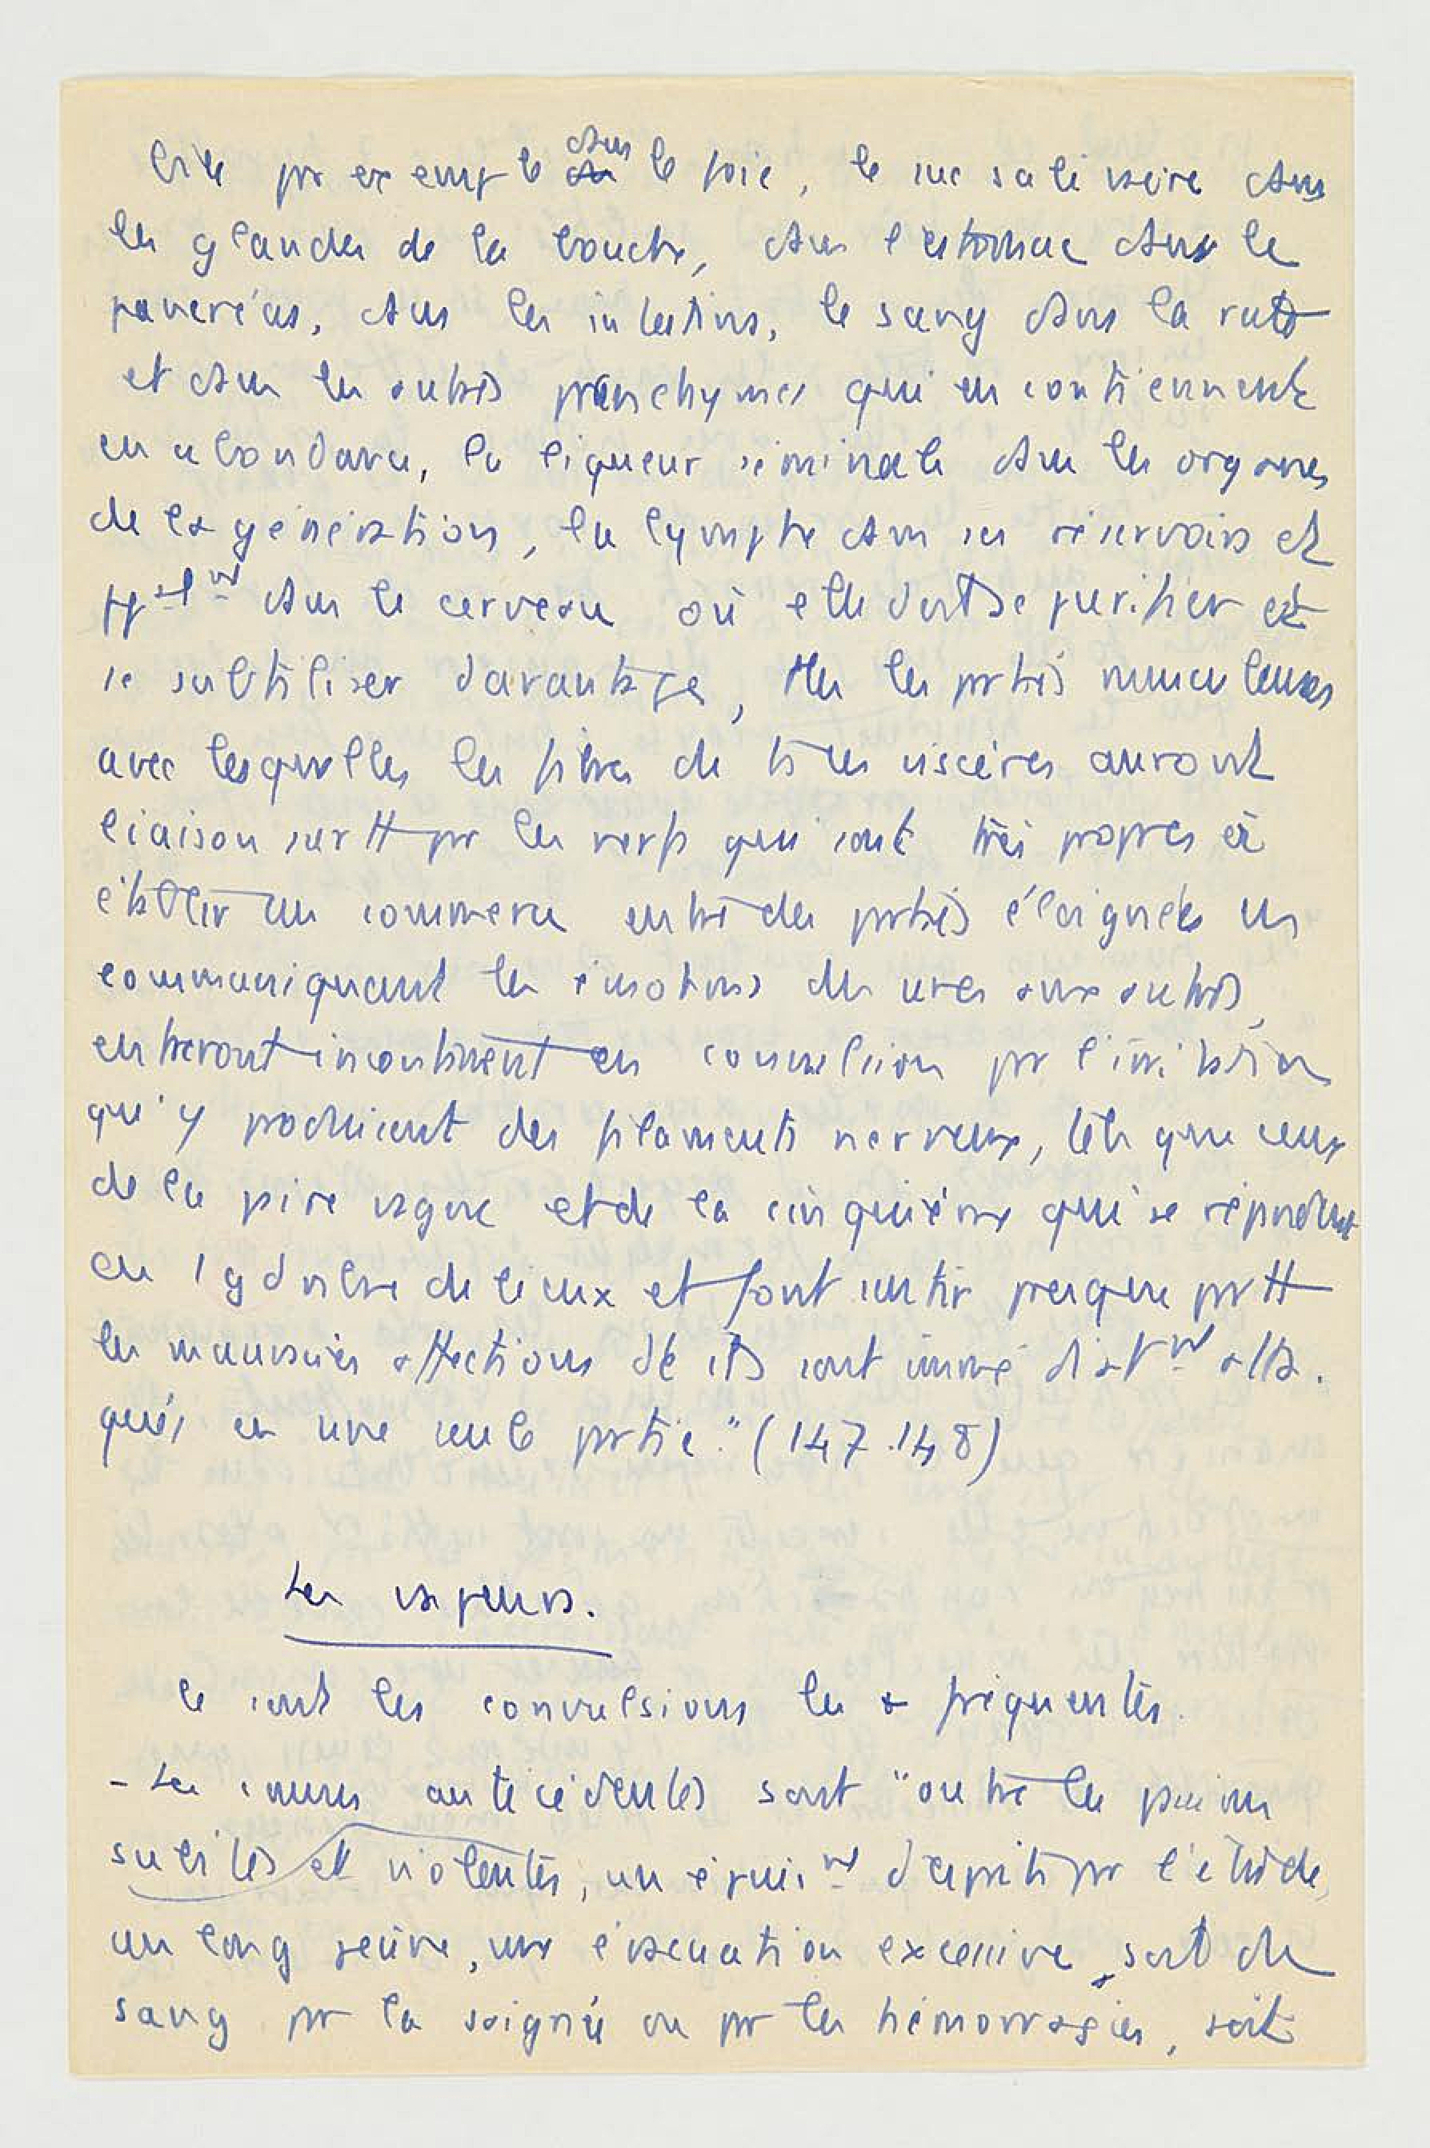 bile par exemple dans le foie, le suc salivaire dans
les glandes de la bouche, dans l'estomac dans le
pancréas, dans les intestins, le sang dans la rate
et dans les autres parenchymes qui en contiennent
en abondance, la liqueur séminale dans les organes
de la génération, la lymphe dans ses réservoirs et
ppalnt dans le cerveau où elle doit se purifier et
se subtiliser davantage, ttes les parties musculeuses
avec lesquelles les fibres de ts les viscères auront
liaison surtt par les nerfs qui sont très propres à
établir un commerce entre des parties éloignées en
communiquant les émotions des unes aux autres,
entreront incontinent en convulsion par l'irritation
qu'y produisent des filaments nerveux, tels que ceux
de la paire vague et de la cinquième qui se répandent
en 1 gd nbre de lieux et font sentir presque partt
les mauvaises affections dt ils sont immédiatnt atta-
qués en une seule partie." (147.148)
Les vapeurs.
Ce sont les convulsions les + fréquentes.
- Les causes antécédentes sont "outre les passions
subites et violentes, un épuisnt d'esprits par l'étude,
un long jeûne, une évacuation excessive, soit de
sang par la saignée ou par les hémorragies, soit